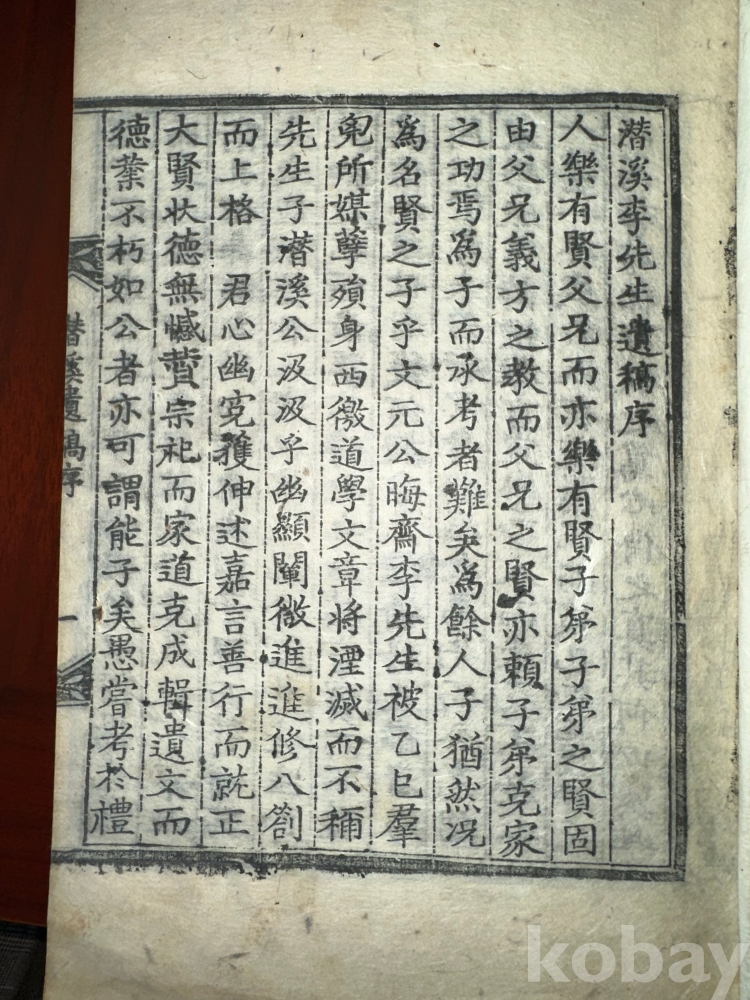 潛溪李先生遺稿序
人樂有賢父兄而亦樂有賢子弟子弟之賢固
由父兄義方之教而父兄之賢亦賴子弟克家
之功焉爲子而承考者難矣爲餘人子猶然况
爲名賢之子乎文元公晦齋李先生被乙巳羣
兇所媒孽殞身西徼道學文章將湮滅而不稱
先生子潛溪公汲汲乎幽顯闡微進進修八劄
而上格　君心幽寃獲伸述嘉言善行而就正
大賢狀德無憾䝴宗祀而家道克成輯遺文而
德業不朽如公者亦可謂能子矣愚嘗考於禮
潛溪遺稿序
一
kobay